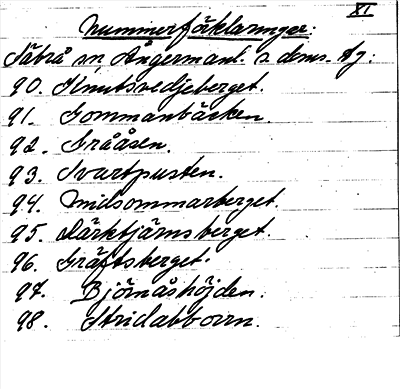 XI
Nummerförklaringar:
Säbrå sn, Ångermanl. s. doms. Aj:
90. Knutsvedjeberget.
91. Gommanbäcken.
92. Grååsen.
93. Svartpusten.
94. Midsommarberget.
95. Lärktjärnsberget.
96. Gräftsberget.
97. Björnåshöjden.
98. Stridabborrn.